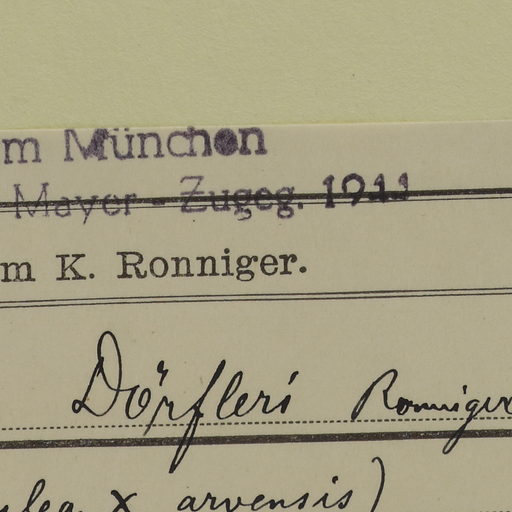 m München
Mayer - Zugeg. 1911
m K. Ronniger.
Dörfleri Ronniger
x arvensis)